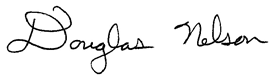 Douglas Nelson